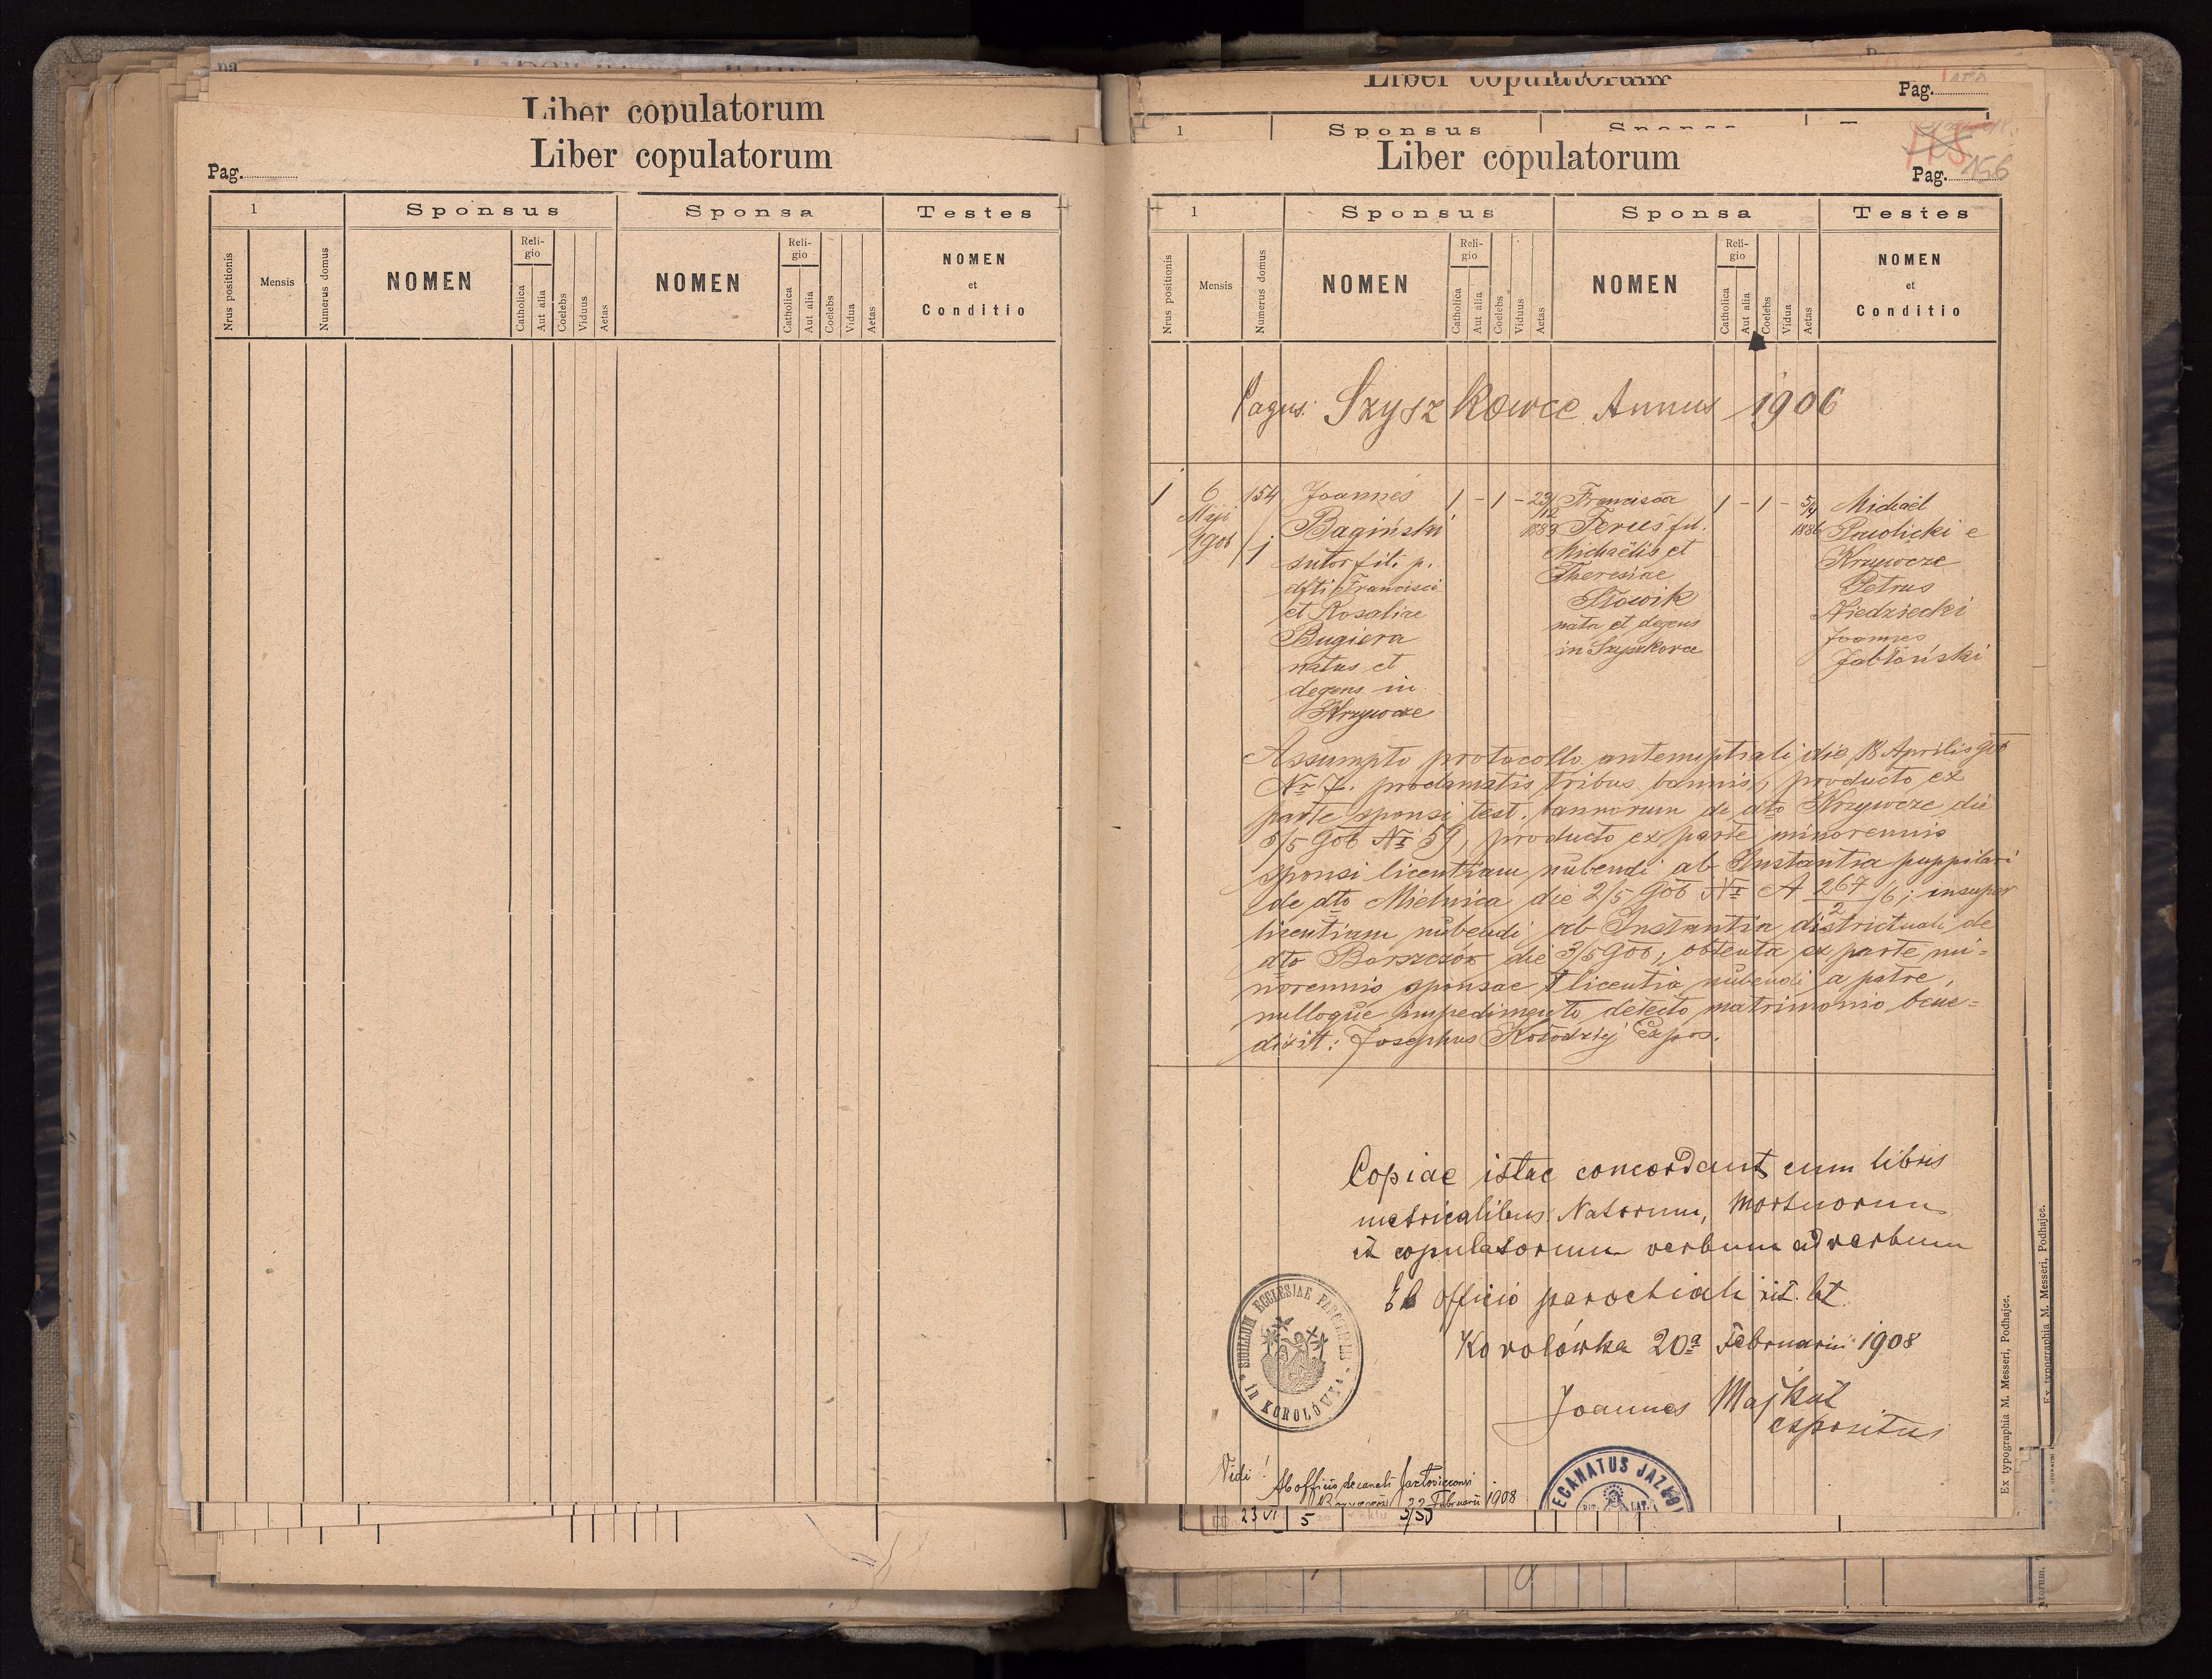 Liber copulatorum
Liber copulatorum
Pag.
1
Sponsus
Sponsa
Testes
Nrus positionis
Mensis
Numerus domus
NOMEN
Religio
Catholica
Aut alia
Coelebs
Viduus
Aetas
NOMEN
Religio
Catholica
Aut alia
Coelebs
Vidua
Aetas
NOMEN
et
Conditio
Liber copulatorum
Pag.
1
Sponsus
Sponsa
Liber copulatorum
Pag. 156
1
Sponsus
Sponsa
Testes
Nrus positionis
Mensis
Numerus domus
NOMEN
Religio
Catholica
Aut alia
Coelebs
Viduus
Aetas
NOMEN
Religio
Catholica
Aut alia
Coelebs
Vidua
Aetas
NOMEN
et
Conditio
Pagus: Szyszkowce Annus 1906
1
6
Maji
1906
154
/1
Joannes
Bagiński
sutor fil. p.
dfti Francisci
et Rosaliae
Bugiera
natus et
degens in
Krzywcze
1 - 1 - 29/12
1883
Francisca
Feruś fil.
Michaëlis et
Theresiae
Słowik
nata et degens
in Szyszkowce
1 - 1 - 5/4
1886
Michaël
Pawlicki e
Krzywcze
Petrus
Niedzwiecki
Joannes
Jabłoński
Assumpto protocollo antenuptiali die 18 Aprilis 906
Nr 7. proclamatis tribus bannis, producto ex
parte sponsi test. bannorum de dto Krzywcze die
5/5 906 Nr 59, producto ex parte minorennis
sponsi licentiam nubendi ab Instantia puppilari
de dto Mielnica die 2/5 906 Nr A 267/2 /6; insuper
licentiam nubendi ab Instantia districtuali de
dto Borszczów die 3/5 906; obtenta ex parte mi=
norennis sponsae licentia nubendi a patre,
nulloque impedimento detecto matrimonio bene=
dixit: Josephus Kołodziej Expos.
Copiae istae concordant cum libris
metricalibus Natorum, Mortuorum
et copulatorum verbum ad verbum
Ab officio parochiali rit. lat.
Korolówka 20a Februarii 1908
Joannes Majkut
expositus
SIGILLUM ECCLESIAE PAROCHIALIS
in KOROLÓWKA
Vidi!
Ab officio decanali Jazłoviecensi
22 Februarii 1908
ECANATUS JAZŁO
RIT. LAT.
23 VI
5
Ex typographia M. Messeri, Podhajce.
Ex typographia M. Messeri, Podhajce.